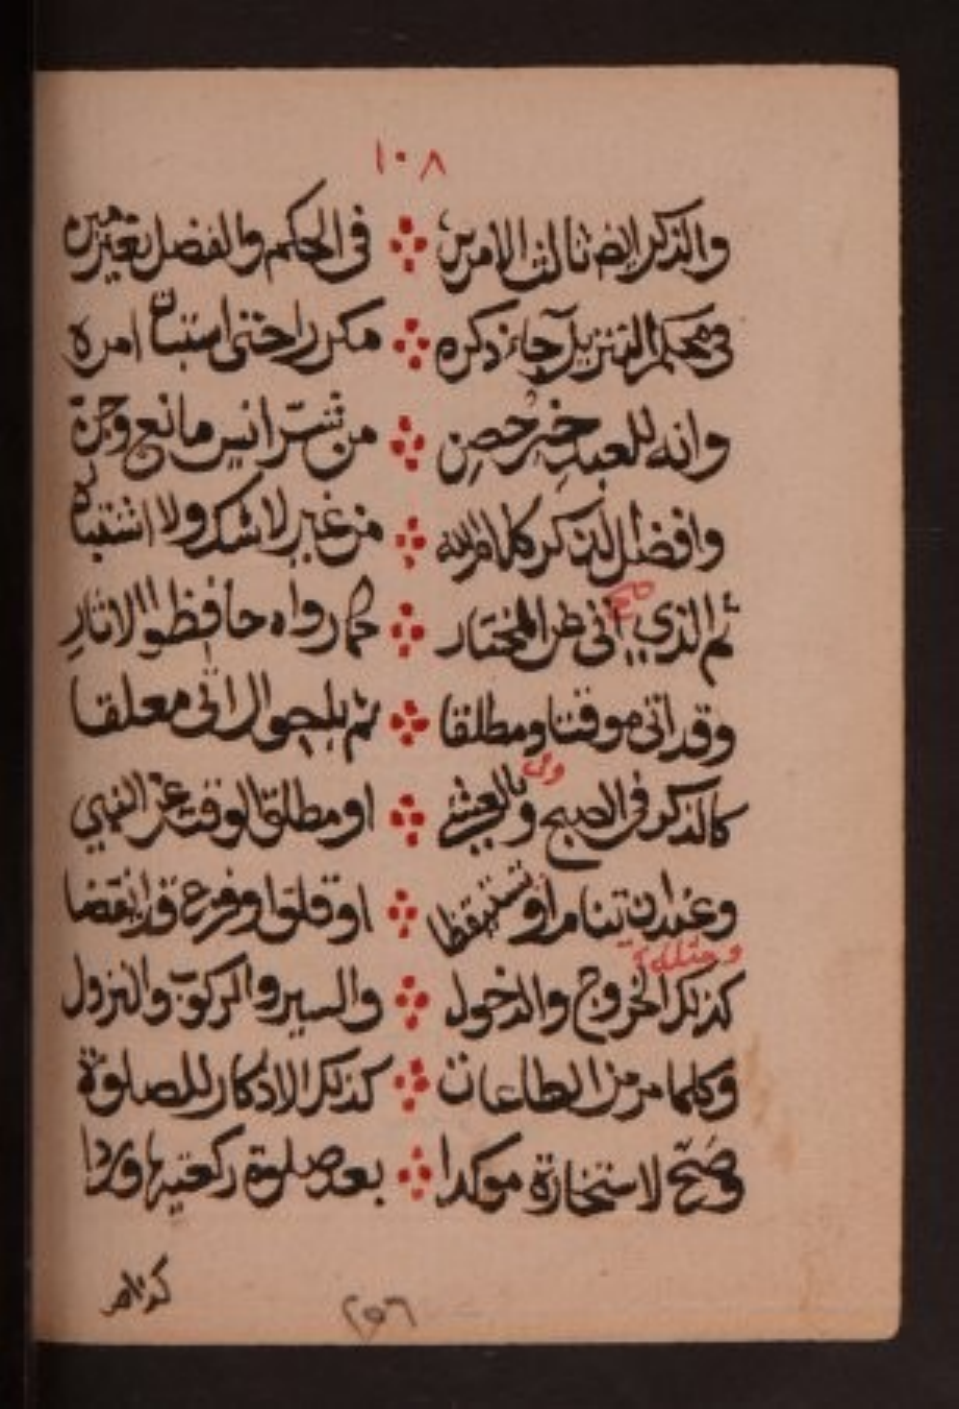 ١٠٨
والذكر ايضا ثالث الامرين في الحكم والفضل بغير مين
في محكم التنزيل جاء ذكره مكررا حتى استبان امره
وانه للعبد خير حصن من شر انس مانع وجن
وافضل الذكر كلام الله من غير لا شك ولا اشتباه
ثم الذي صح اتى عن المختار كما رواه حافظوا الاثار
وقد اتى موقتا ومطلقا ثم بلحوال اتى معلقا
كالذكر في الصبح وفي العشي او مطلق الوقت عن النبي
وعند ان تنام او تستيقظا او قلق او فزع
وعند
كذلك الخروج والدخول والسير والركوب والنزول
وكلما مر من الطاعات كذلك الاذكار للصلوة
وصح لاستخارة موكدا بعد صلوة ركعتين وردا
٢٥٦